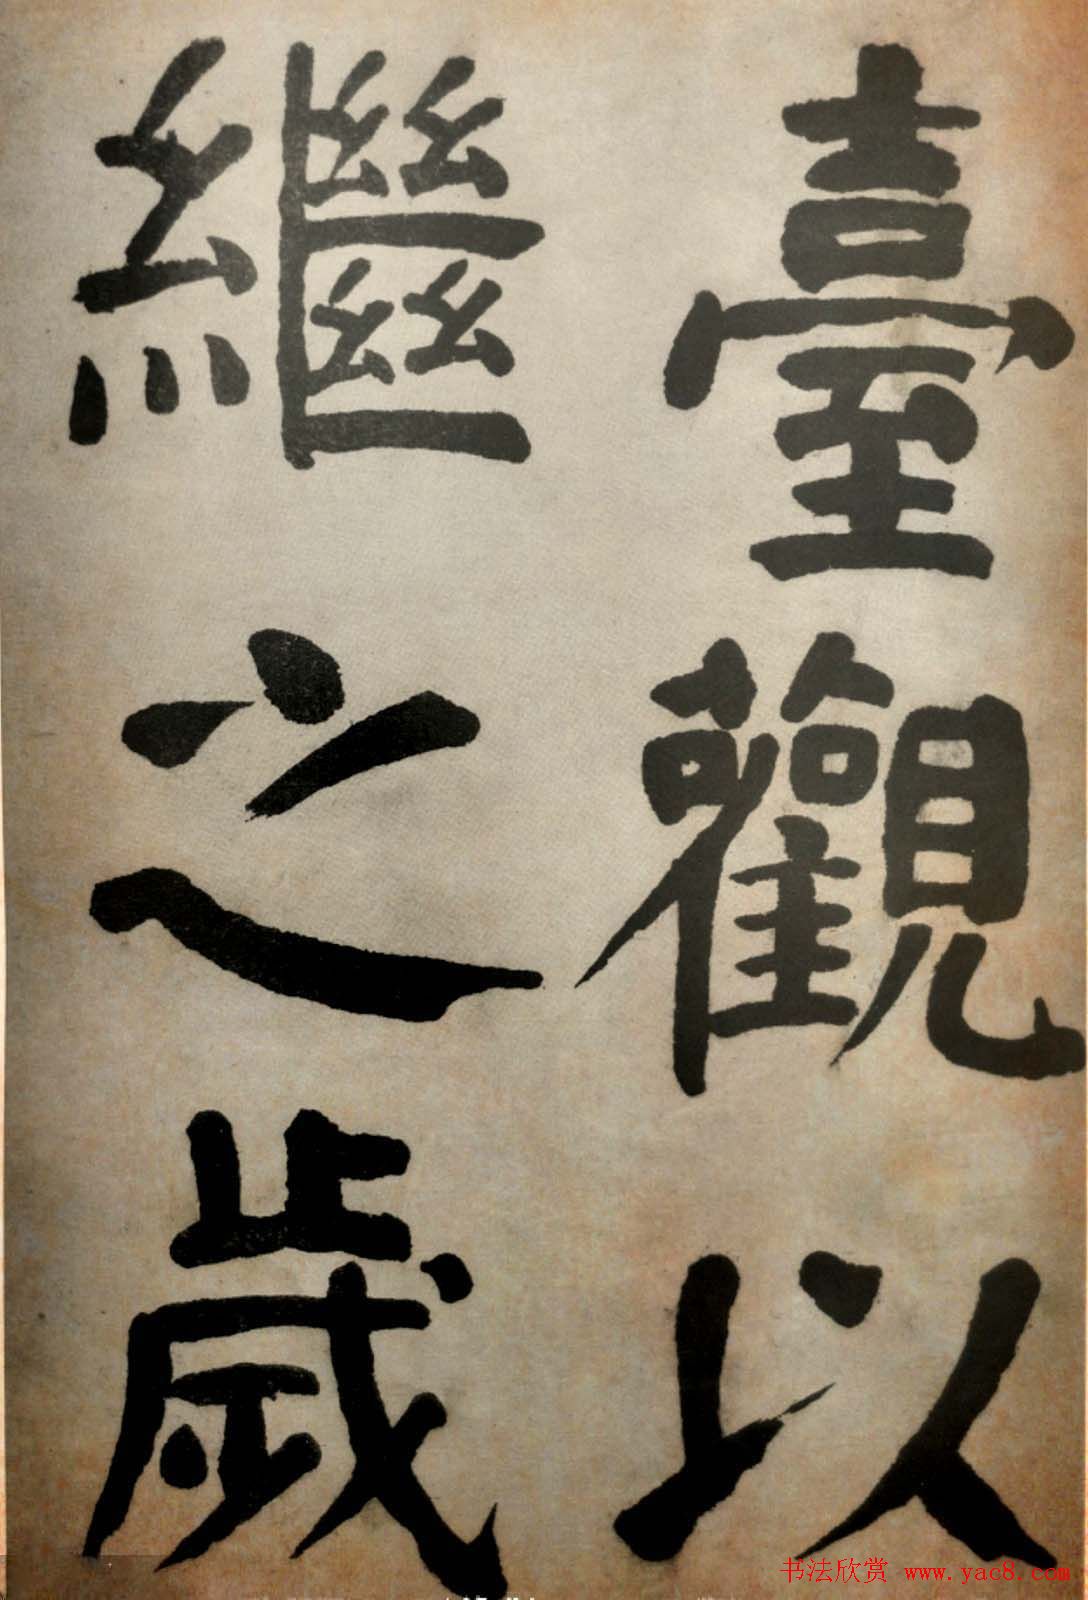 臺觀以
繼之歲
书法欣赏 www.yac8.com